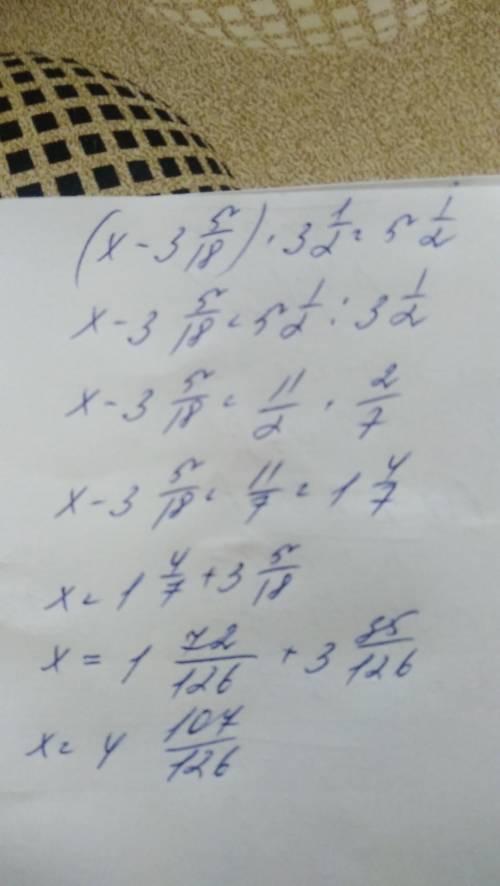 (x - 3 5/18) · 3 1/2 = 5 1/2
x - 3 5/18 = 5 1/2 : 3 1/2
x - 3 5/18 = 11/2 · 2/7
x - 3 5/18 = 11/7 = 1 4/7
x = 1 4/7 + 3 5/18
x = 1 72/126 + 3 35/126
x = 4 107/126